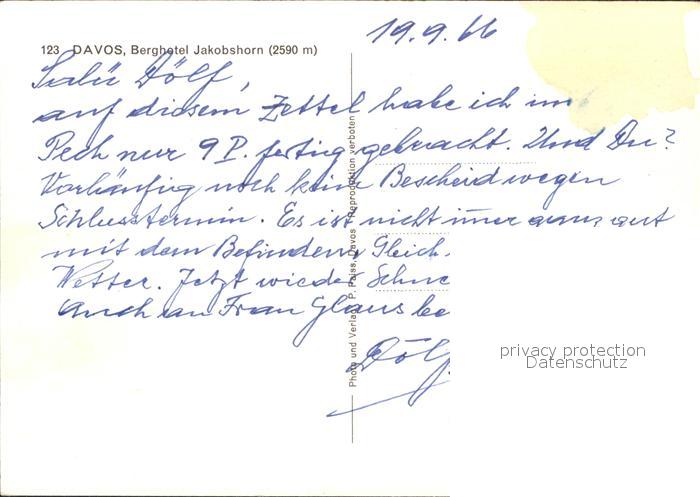 123 DAVOS, Berghotel Jakobshorn (2590 m)
19.9.66
Salü Dölf,
auf diesem Zettel habe ich im
Pech nur 9 P. fertig gebracht. Und Du?
Vorläufig noch keine Bescheid wegen
Schlusstermin. Es ist nicht imer ganz gut
mit dem Befinden. Gleich.
Wetter. Jetzt wieder Schne
Auch an Frau Glaus be
Dölf
Photo und Verlag P. Davos Reproduktion verboten
privacy protection
Datenschutz